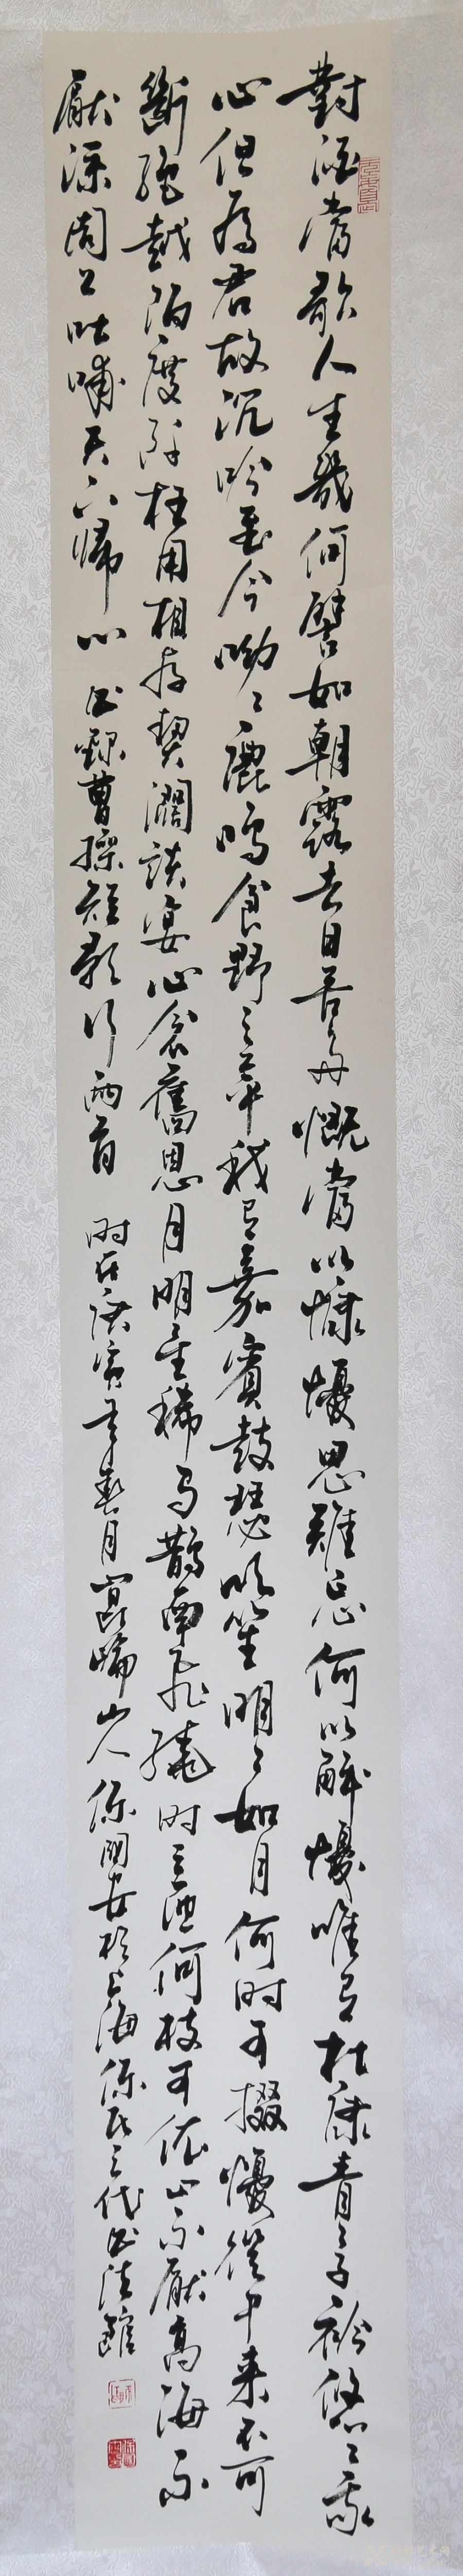 對酒當歌人生幾何譬如朝露去日苦多慨當以慷懮思難忘何以解懮唯有杜康青〻子衿悠〻我
心但為君故沉吟至今呦〻鹿鳴食野之苹我有嘉賓鼓瑟吹笙明〻如月何时可掇懮從中来不可
斷絕越陌度阡枉用相存契濶談宴心念舊恩月明星稀烏鵲南飛繞时三匝何枝可依山不厭高海不
厭深周公吐哺天下歸心 书錄曹操短歌行兩首 时在庚寅年春月崑崙山人 安於上海 氏三代书法館